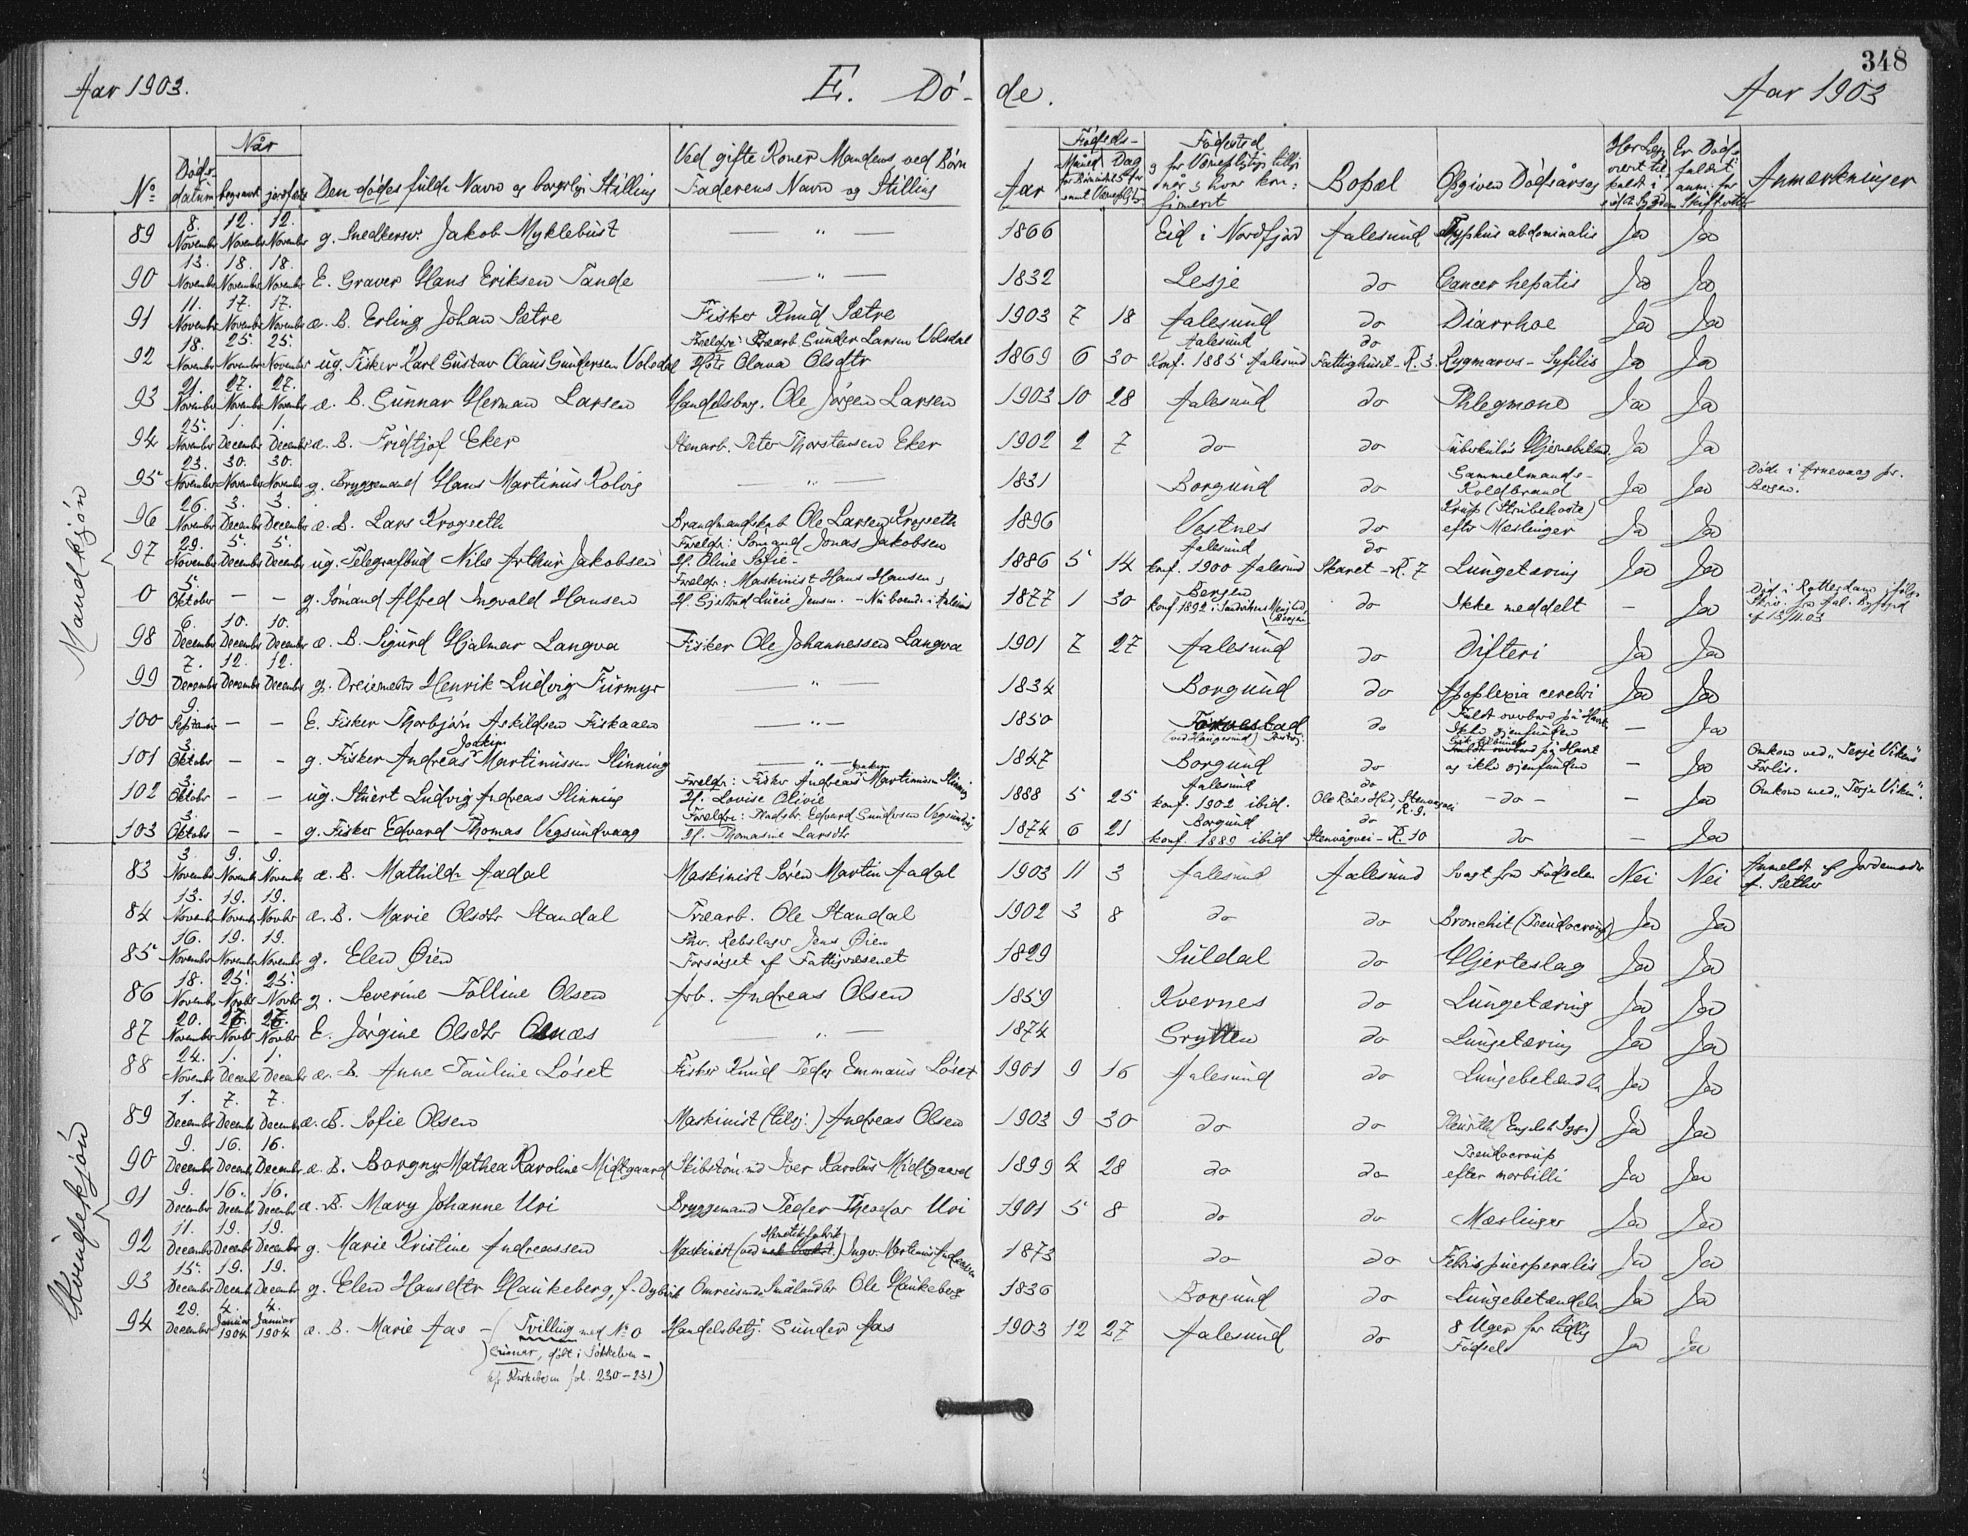 348
Aar 1903. E. Dö- de. Aar 1903
No Dödsdatum Når begravet jordfæstet Den dödes fulde Navn og borgerlige Stilling Ved gifte Koner Mandens, ved Börn Faderens Navn og Stilling Aar Födsels- Måned Dag Födested Bopæl Opgiven Dödsårsag Anmærkninger
Mandkjön
89 8. November 12. November 12. November g. Snedkersv. Jakob Myklebust — " — 1866 Eid i Nordfjord Aalesund Typhus abdominalis Ja Ja
90 13. November 18. November 18. November E. Graver Hans Eriksen Tande — " — 1832 Lesje do Cancer hepatis Ja Ja
91 11. November 17. November 17. November æ. B. Erling Johan Sætre Fisker Knud Sætre 1903 7 18 Aalesund do Diarrhoe Ja Ja
92 18. November 25. November 25. November ug. Fisker Karl Gustav Claus Gundersen Volsdal Forældre: Træarb. Gunder Larsen Volsdal Hstr Olava Olsdtr 1869 6 30 Aalesund Konf. 1885 Aalesund do Fattighuset - R. 3. Rygmarvs- Syfilis Ja Ja
93 21. November 27. November 27. November æ. B. Gunnar Herman Larsen Handelsborg. Ole Jörgen Larsen 1903 10 28 Aalesund do Phlegmone Ja Ja
94 25. November 1. December 1. December æ. B. Fridtjof Eker Stenarb. Peter Thorstensen Eker 1902 2 7 do do Tuberkulös Hjernebetænd. Ja Ja
95 23. November 30. November 30. November g. Bryggemand Hans Martinus Kolvig — " — 1831 Borgund do Gammelmands- Koldbrand Ja Ja Döde i Arnevaag pr. Bergen.
96 26. November 3. December 3. December æ. B. Lars Krogseth Brandmandskab Ole Larsen Krogseth 1896 Vestnes do Krup (Strubehoste) efter Mæslinger Ja Ja
97 29. November 5. December 5. December ug. Telegrafbud Nils Arthur Jakobsen Forældr: Sömand Jonas Jakobsen H. Oline Sofie - 1886 5 14 Aalesund konf. 1900 Aalesund do Skaret - R. 7 Lungetæring Ja Ja
0 5. Oktober — — g. Sömand Alfred Ingvald Hansen Forældr: Maskinist Hans Hansen, H. Gjertrud Lucie Jensen. - Nu boende i Aalesund 1877 1 30 Bergen Konf. 1892 i Sandvikens Menighed Bergen do Ikke meddelt — Ja Död i Rotterdam ifölge Skriv. fra Aal. Byfogd af 13/11.03
98 6. December 10. December 10. December æ. B. Sigurd Hjalmar Langva Fisker Ole Johannessen Langva 1901 7 27 Aalesund do Difteri Ja Ja
99 7. December 12. December 12. December g. Dreiemester Henrik Ludvig Furmyr — " — 1834 Borgund do Apoplexia cerebri Ja Ja
100 9. September — — E. Fisker Thorbjörn Askildsen Fiskaaen — " — 1850 (ved Haugesund) do Faldt overbord på Havet Ikke gjenfunden — Ja
101 3. Oktober — — g. Fisker Andreas Joakim Martinussen Slinning — " — 1847 Borgund do og ikke gjenfunden — Ja Omkom ved "Terje Vikens" Forlis.
102 3. Oktober — — ug. Stuert Ludvig Andreas Slinning Forældr: Fisker Andreas Joakim Martinussen Slinning H. Lovise Olivie 1888 5 25 Aalesund konf. 1902 ibid. do R. 9. - do - — Ja Omkom med "Terje Viken".
103 3. Oktober — — g. Fisker Edvard Thomas Vegsundvaag Edvard Gundersen Vegsundvåg H. Thomasine Larsdtr 1874 6 21 Borgund konf. 1889 ibid do Stenvågvei - R. 10 do — Ja
Kvindekjön
83 3. November 9. November 9. November æ. B. Mathilde Aadal Maskinist Sören Martin Aadal 1903 11 3 Aalesund Aalesund Svagt fra Födselen Nei Nei Anmeldt af Jordemoder f. Sæther
84 13. November 19. November 19. Novbr æ. B. Marie Olsdtr Standal Træarb. Ole Standal 1902 3 8 do do Bronchit (Pseudocroup) Ja Ja
85 16. November 19. November 19. November g. Elen Öien Fhv. Rebslager Jens Öien Forsörget af Fattigvæsenet 1829 Suldal do Hjerteslag Ja Ja
86 18. November 25. Novbr 25. Novbr g. Severine Talline Olsen Arb. Andreas Olsen 1859 Kvernes do Lungetæring Ja Ja
87 20. November 27. Novbr 27. Novbr E. Jörgine Olsdtr — " — 1874 Grytten do Lungetæring Ja Ja
88 24. November 1. December 1. December æ. B. Anne Pauline Löset Fisker Knud Peder Emmaus Löset 1901 9 16 Aalesund do Lungebetændelse Ja Ja
89 1. December 7. December 7. December æ. B. Sofie Olsen Maskinist (tilsj:) Andreas Olsen 1903 9 30 do do (Engelsk Syge) Ja Ja
90 9. December 16. December 16. December æ. B. Borgny Mathea Karoline Midtgaard Skibstömmermand Iver Karolus Midtgaard 1899 4 28 do do Pseudocroup efter morbilli Ja Ja
91 9. December 16. December 16. December æ. B. Mary Johanne Uri Bryggemand Peder Theodor Uri 1901 5 8 do do Mæslinger Ja Ja
92 11. December 19. December 19. December g. Marie Kristine Andreassen Maskinist (ved Hermetikfabrik) Ingv. Martinus Andreassen 1873 do do Febris puerperalis Ja Ja
93 15. December 19. December 19. December g. Elen Hansdtr Haukeberg, f. Dybvik Omreisende Småhandler Ole Haukeberg 1836 Borgund do Lungebetændelse Ja Ja
94 29. December 4. Januar 1904 4. Januar 1904 æ. B. Marie Aas - (Tvilling med No 0 Handelsbetj. Gunder Aas 1903 12 27 Aalesund do 8 Uger for tidlig Födsel Ja Ja
Gunnar, födt i Sökkelven -
kfr. Kirkebogen fol. 230-231)